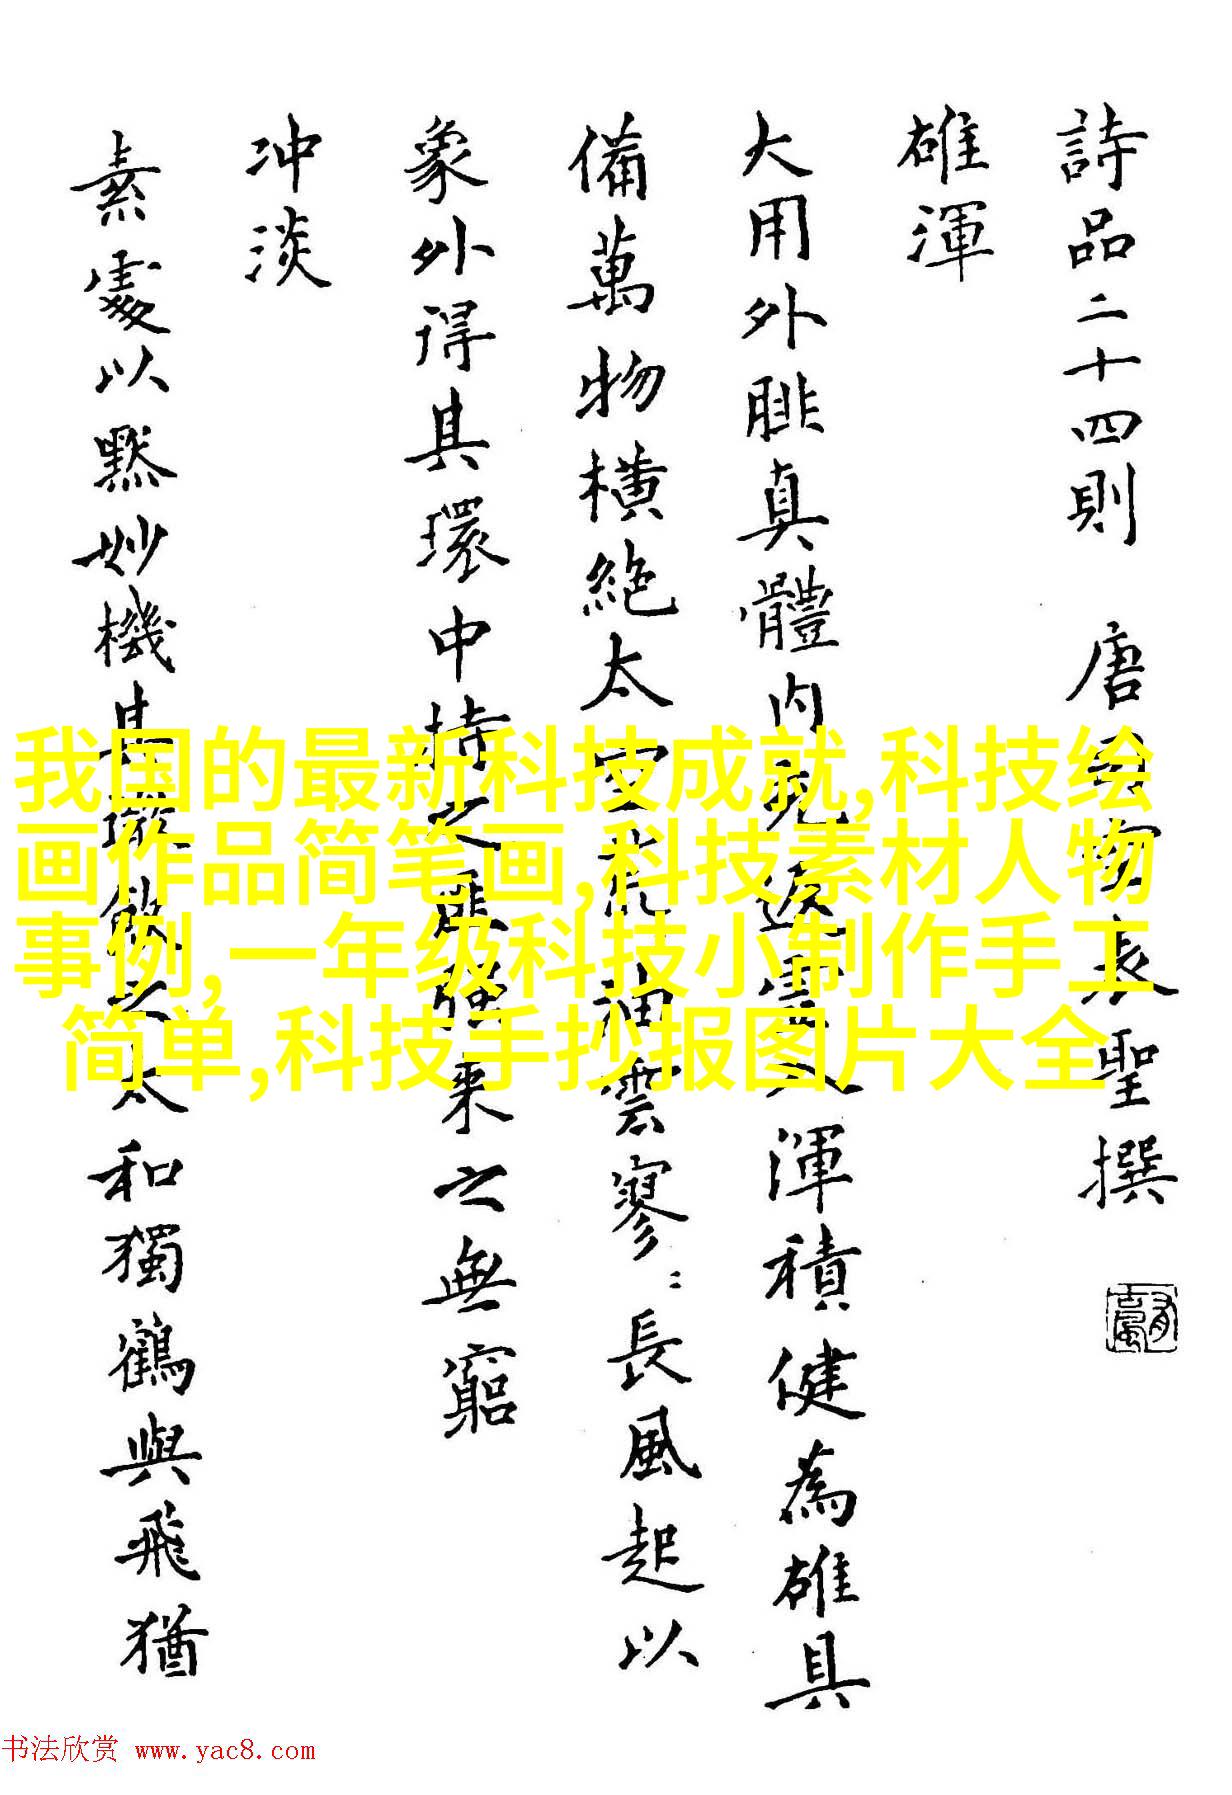 詩品二十四則 唐司空表聖撰
雄渾
大用外腓真體內充返虛入渾積健為雄具
備萬物橫絕太空荒油雲寥︰長風起以
象外得其環中持之匪強来之無窮
冲淡
素處以默妙機其微飲之太和獨鶴與飛猶
我国的最新科技成就,科技绘
画作品简笔画,科技素材人物
事例,一年级科技小制作手工
简单,科技手抄报图片大全
书法欣赏 www.yac8.com